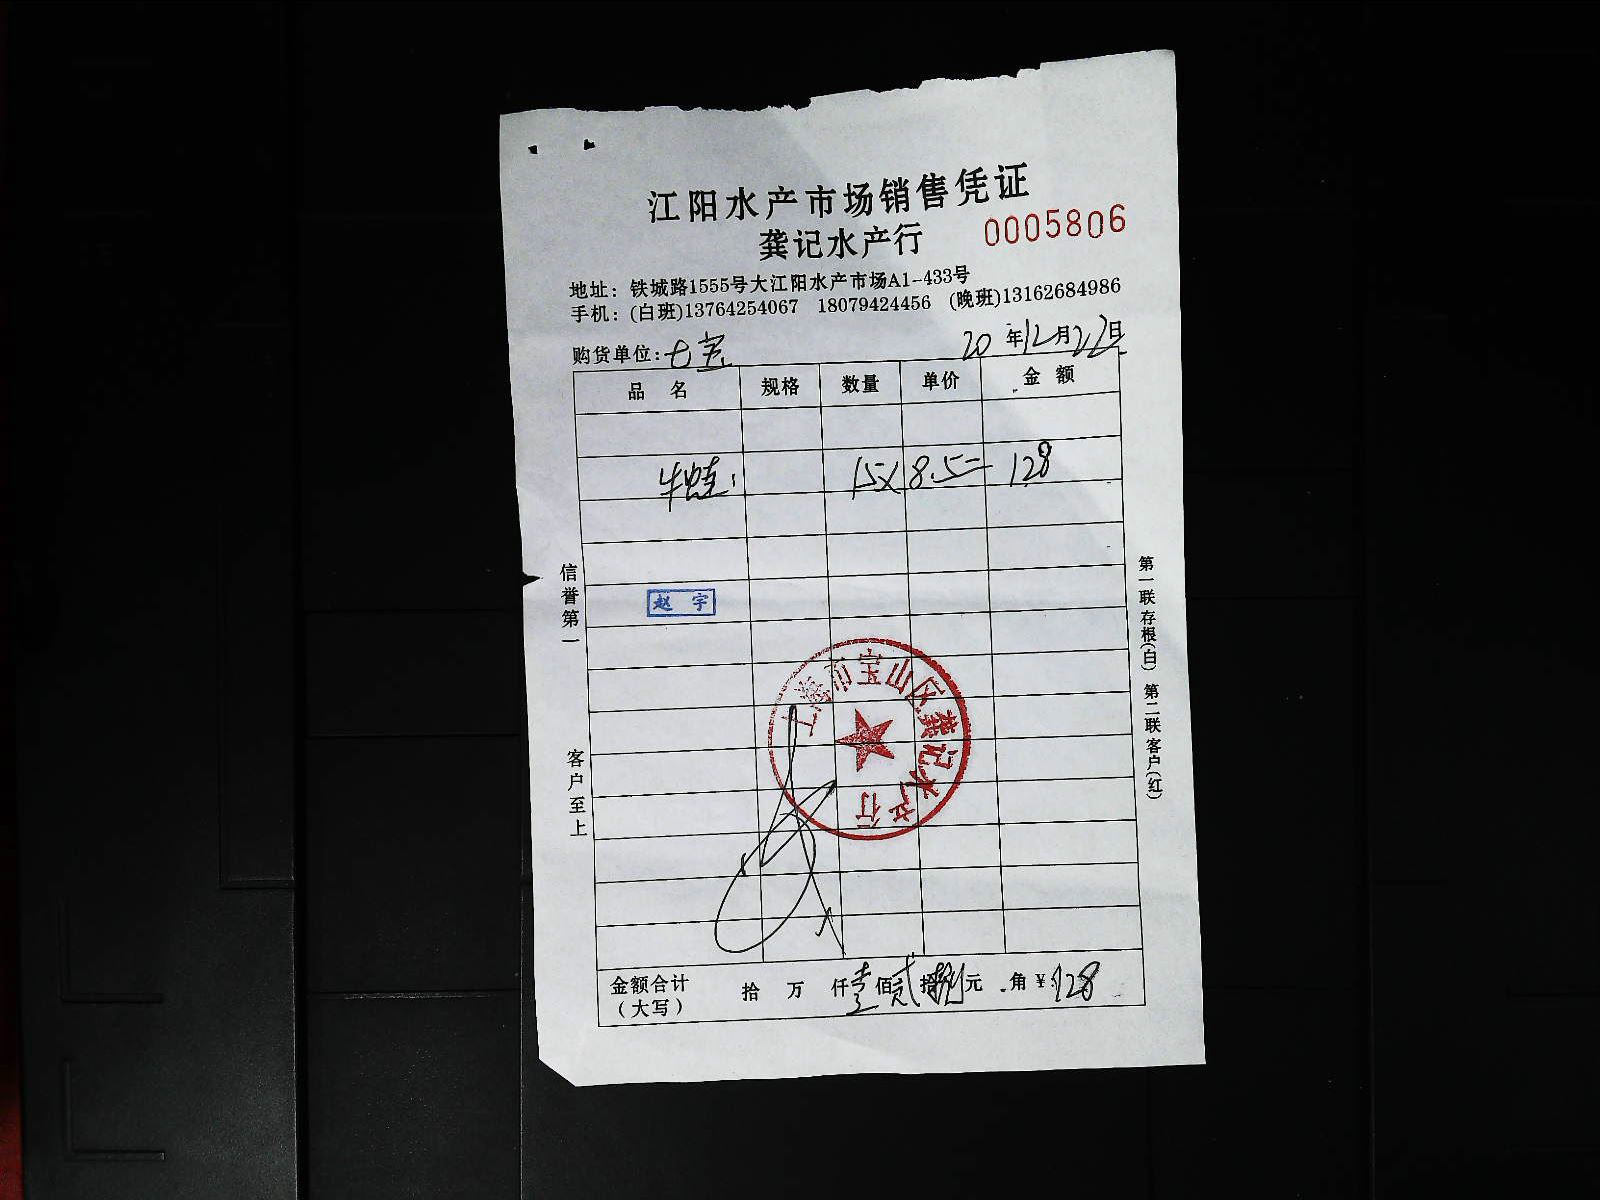 江阳水产市场销售凭证
龚记水产行 0005806
地址：铁城路1555号大江阳水产市场A1-433号
手机：(白班)13764254067 18079424456 (晚班)13162684986
购货单位：七宝 20年12月22日
品名 规格 数量 单价 金额
牛蛙 15× 8.5= 128
信誉第一
客户至上
赵宇
上海市宝山区龚记水产行
第一联存根(白) 第二联客户(红)
金额合计 拾 万 仟壹佰贰拾捌元 角¥:128
（大写）